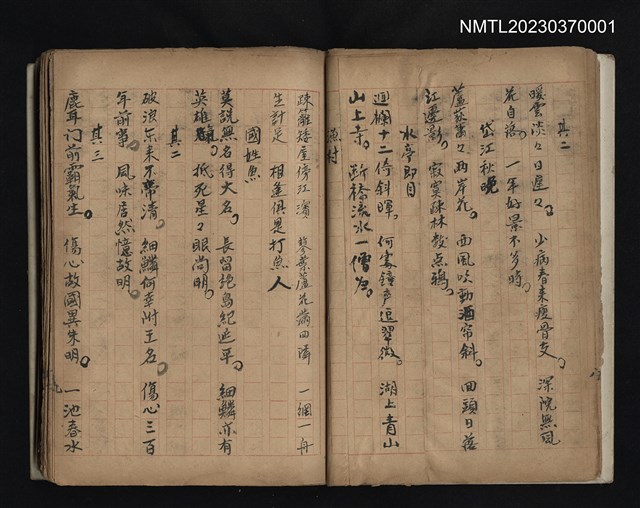 NMTL20230370001
其二
暖雲淡々日遲々。少病春來瘦骨支。深院無風
花自落。一年好景不多時。
岱江秋晚
蘆荻蕭々兩岸花。西風吹動酒帘斜。回頭日落
江邊影。寂寞疎林數点鴉。
水亭即目
迴欄十二倚斜暉。何處鐘声追翠微。湖上青山
山上寺。斷橋流水一僧歸。
漁村
疎籬矮屋傍江濱 蓼葉蘆花滿四隣 一網一舟
生計足 相逢俱是打魚人
國姓魚
莫說無名得大名。長留絕島紀延平。細鱗亦有
英雄 。抵死星々眼尚明。
其二
破浪東來不帶清。細鱗何幸附王名。傷心三百
年前事。風味居然憶故明。
其三
鹿耳门前霸氣生。傷心故國異朱明。一池春水